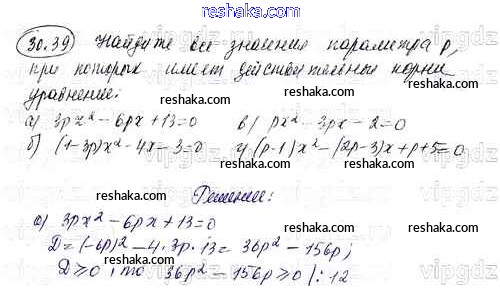 reshaka.com
30.39 Найдите все значения параметра p,
при которых имеет действительные корни
уравнение:
reshaka.com
reshaka.com
а) 3px² - 6px + 13 = 0 в) px² - 3px - 2 = 0
б) (1-3p)x² - 4x - 3 = 0 г) (p-1)x² - (2p-3)x + p + 5 = 0
reshaka.com
reshaka.com
Решение:
reshaka.com
а) 3px² - 6px + 13 = 0
D = (-6p)² - 4·3p·13 = 36p² - 156p;
reshaka.com
reshaka.com
D ≥ 0, то 36p² - 156p ≥ 0 |: 12
reshaka.com